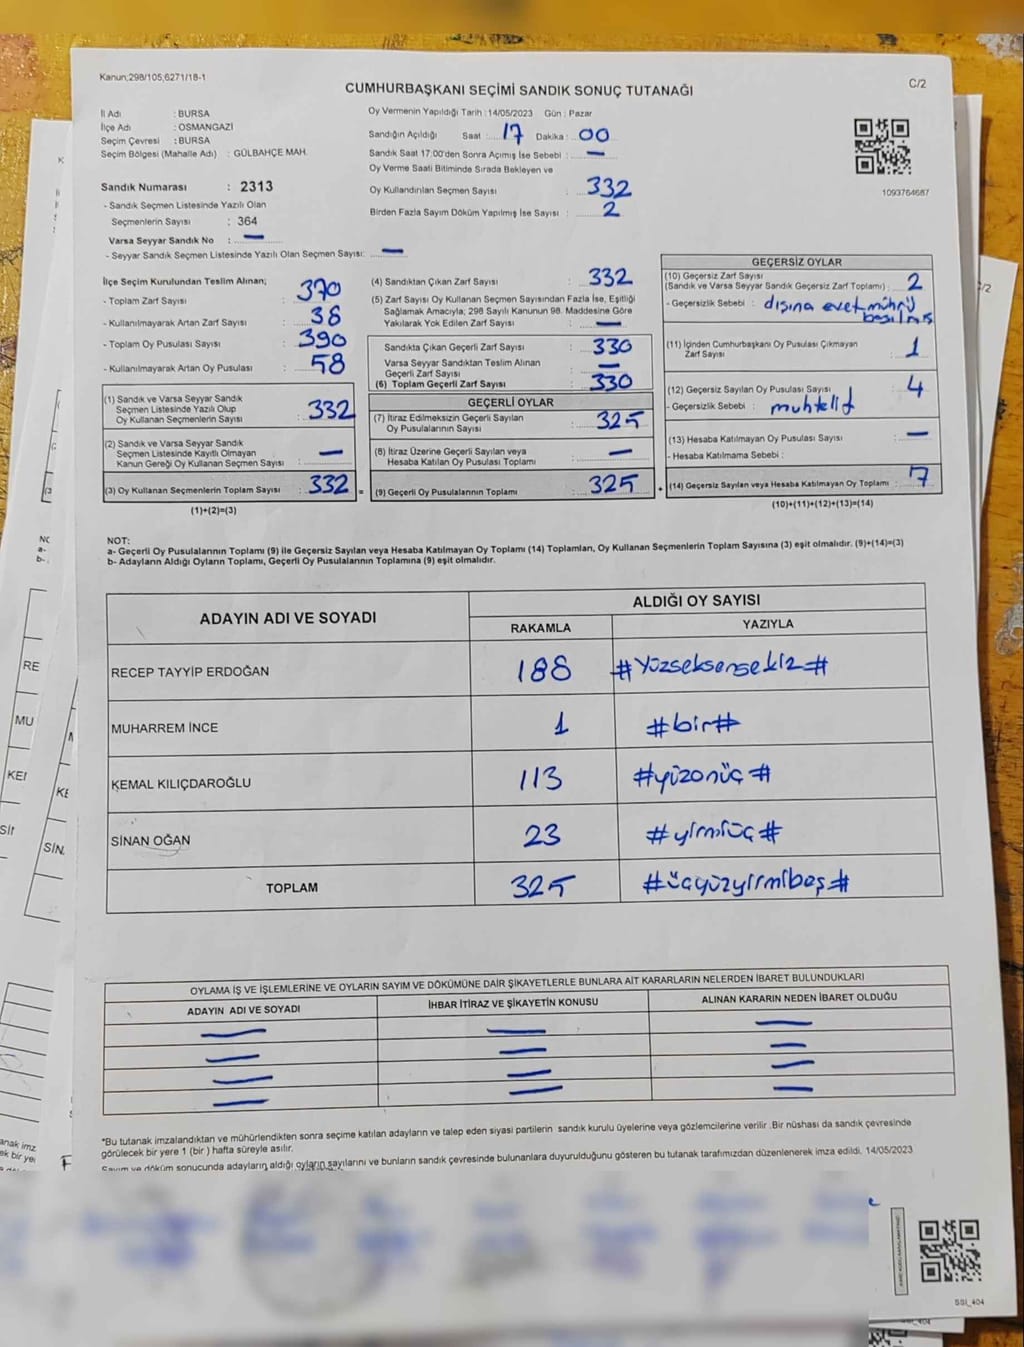 Kanun;298/105,6271/18-1
CUMHURBAŞKANI SEÇİMİ SANDIK SONUÇ TUTANAĞI
C/2
İl Adı : BURSA
İlçe Adı : OSMANGAZİ
Seçim Çevresi : BURSA
Seçim Bölgesi (Mahalle Adı) : GÜLBAHÇE MAH.
Sandık Numarası : 2313
- Sandık Seçmen Listesinde Yazılı Olan
Seçmenlerin Sayısı : 364
Varsa Seyyar Sandık No : —
- Seyyar Sandık Seçmen Listesinde Yazılı Olan Seçmen Sayısı: —
Oy Vermenin Yapıldığı Tarih : 14/05/2023 Gün : Pazar
Sandığın Açıldığı Saat : 17 Dakika : 00
Sandık Saat 17:00'den Sonra Açımış İse Sebebi : —
Oy Verme Saati Bitiminde Sırada Bekleyen ve
Oy Kullandırılan Seçmen Sayısı : 332
Birden Fazla Sayım Döküm Yapılmış İse Sayısı : 2
1093764687
İlçe Seçim Kurulundan Teslim Alınan;
- Toplam Zarf Sayısı : 370
- Kullanılmayarak Artan Zarf Sayısı : 38
- Toplam Oy Pusulası Sayısı : 390
- Kullanılmayarak Artan Oy Pusulası : 58
(1) Sandık ve Varsa Seyyar Sandık
Seçmen Listesinde Yazılı Olup
Oy Kullanan Seçmenlerin Sayısı : 332
(2) Sandık ve Varsa Seyyar Sandık
Seçmen Listesinde Kayıtlı Olmayan
Kanun Gereği Oy Kullanan Seçmen Sayısı : —
(3) Oy Kullanan Seçmenlerin Toplam Sayısı : 332 =
(1)+(2)=(3)
(4) Sandıktan Çıkan Zarf Sayısı : 332
(5) Zarf Sayısı Oy Kullanan Seçmen Sayısından Fazla İse, Eşitliği
Sağlamak Amacıyla; 298 Sayılı Kanunun 98. Maddesine Göre
Yakılarak Yok Edilen Zarf Sayısı : —
Sandıkta Çıkan Geçerli Zarf Sayısı : 330
Varsa Seyyar Sandıktan Teslim Alınan
Geçerli Zarf Sayısı : —
(6) Toplam Geçerli Zarf Sayısı : 330
GEÇERLİ OYLAR
(7) İtiraz Edilmeksizin Geçerli Sayılan
Oy Pusulalarının Sayısı : 325
(8) İtiraz Üzerine Geçerli Sayılan veya
Hesaba Katılan Oy Pusulası Toplamı : —
(9) Geçerli Oy Pusulalarının Toplamı : 325 +
GEÇERSİZ OYLAR
(10) Geçersiz Zarf Sayısı
(Sandık ve Varsa Seyyar Sandık Geçersiz Zarf Toplamı) : 2
- Geçersizlik Sebebi : dışına evet mührü
basılmış
(11) İçinden Cumhurbaşkanı Oy Pusulası Çıkmayan
Zarf Sayısı : 1
(12) Geçersiz Sayılan Oy Pusulası Sayısı : 4
- Geçersizlik Sebebi : muhtelif
(13) Hesaba Katılmayan Oy Pusulası Sayısı : —
- Hesaba Katılmama Sebebi :
(14) Geçersiz Sayılan veya Hesaba Katılmayan Oy Toplamı : 7
(10)+(11)+(12)+(13)=(14)
NOT:
a- Geçerli Oy Pusulalarının Toplamı (9) ile Geçersiz Sayılan veya Hesaba Katılmayan Oy Toplamı (14) Toplamları, Oy Kullanan Seçmenlerin Toplam Sayısına (3) eşit olmalıdır. (9)+(14)=(3)
b- Adayların Aldığı Oyların Toplamı, Geçerli Oy Pusulalarının Toplamına (9) eşit olmalıdır.
ADAYIN ADI VE SOYADI
ALDIĞI OY SAYISI
RAKAMLA YAZIYLA
RECEP TAYYİP ERDOĞAN 188 #Yüzseksensekiz#
MUHARREM İNCE 1 #bir#
KEMAL KILIÇDAROĞLU 113 #yüzonüç#
SİNAN OĞAN 23 #yirmiüç#
TOPLAM 325 #üçyüzyirmibeş#
OYLAMA İŞ VE İŞLEMLERİNE VE OYLARIN SAYIM VE DÖKÜMÜNE DAİR ŞİKAYETLERLE BUNLARA AİT KARARLARIN NELERDEN İBARET BULUNDUKLARI
ADAYIN ADI VE SOYADI İHBAR İTİRAZ VE ŞİKAYETİN KONUSU ALINAN KARARIN NEDEN İBARET OLDUĞU
— — —
— — —
— — —
— — —
*Bu tutanak imzalandıktan ve mühürlendikten sonra seçime katılan adayların ve talep eden siyasi partilerin sandık kurulu üyelerine veya gözlemcilerine verilir .Bir nüshası da sandık çevresinde
görülecek bir yere 1 (bir ) hafta süreyle asılır.
Sayım ve döküm sonucunda adayların aldığı oyların sayılarını ve bunların sandık çevresinde bulunanlara duyurulduğunu gösteren bu tutanak tarafımızdan düzenlenerek imza edildi. 14/05/2023
SSI_404